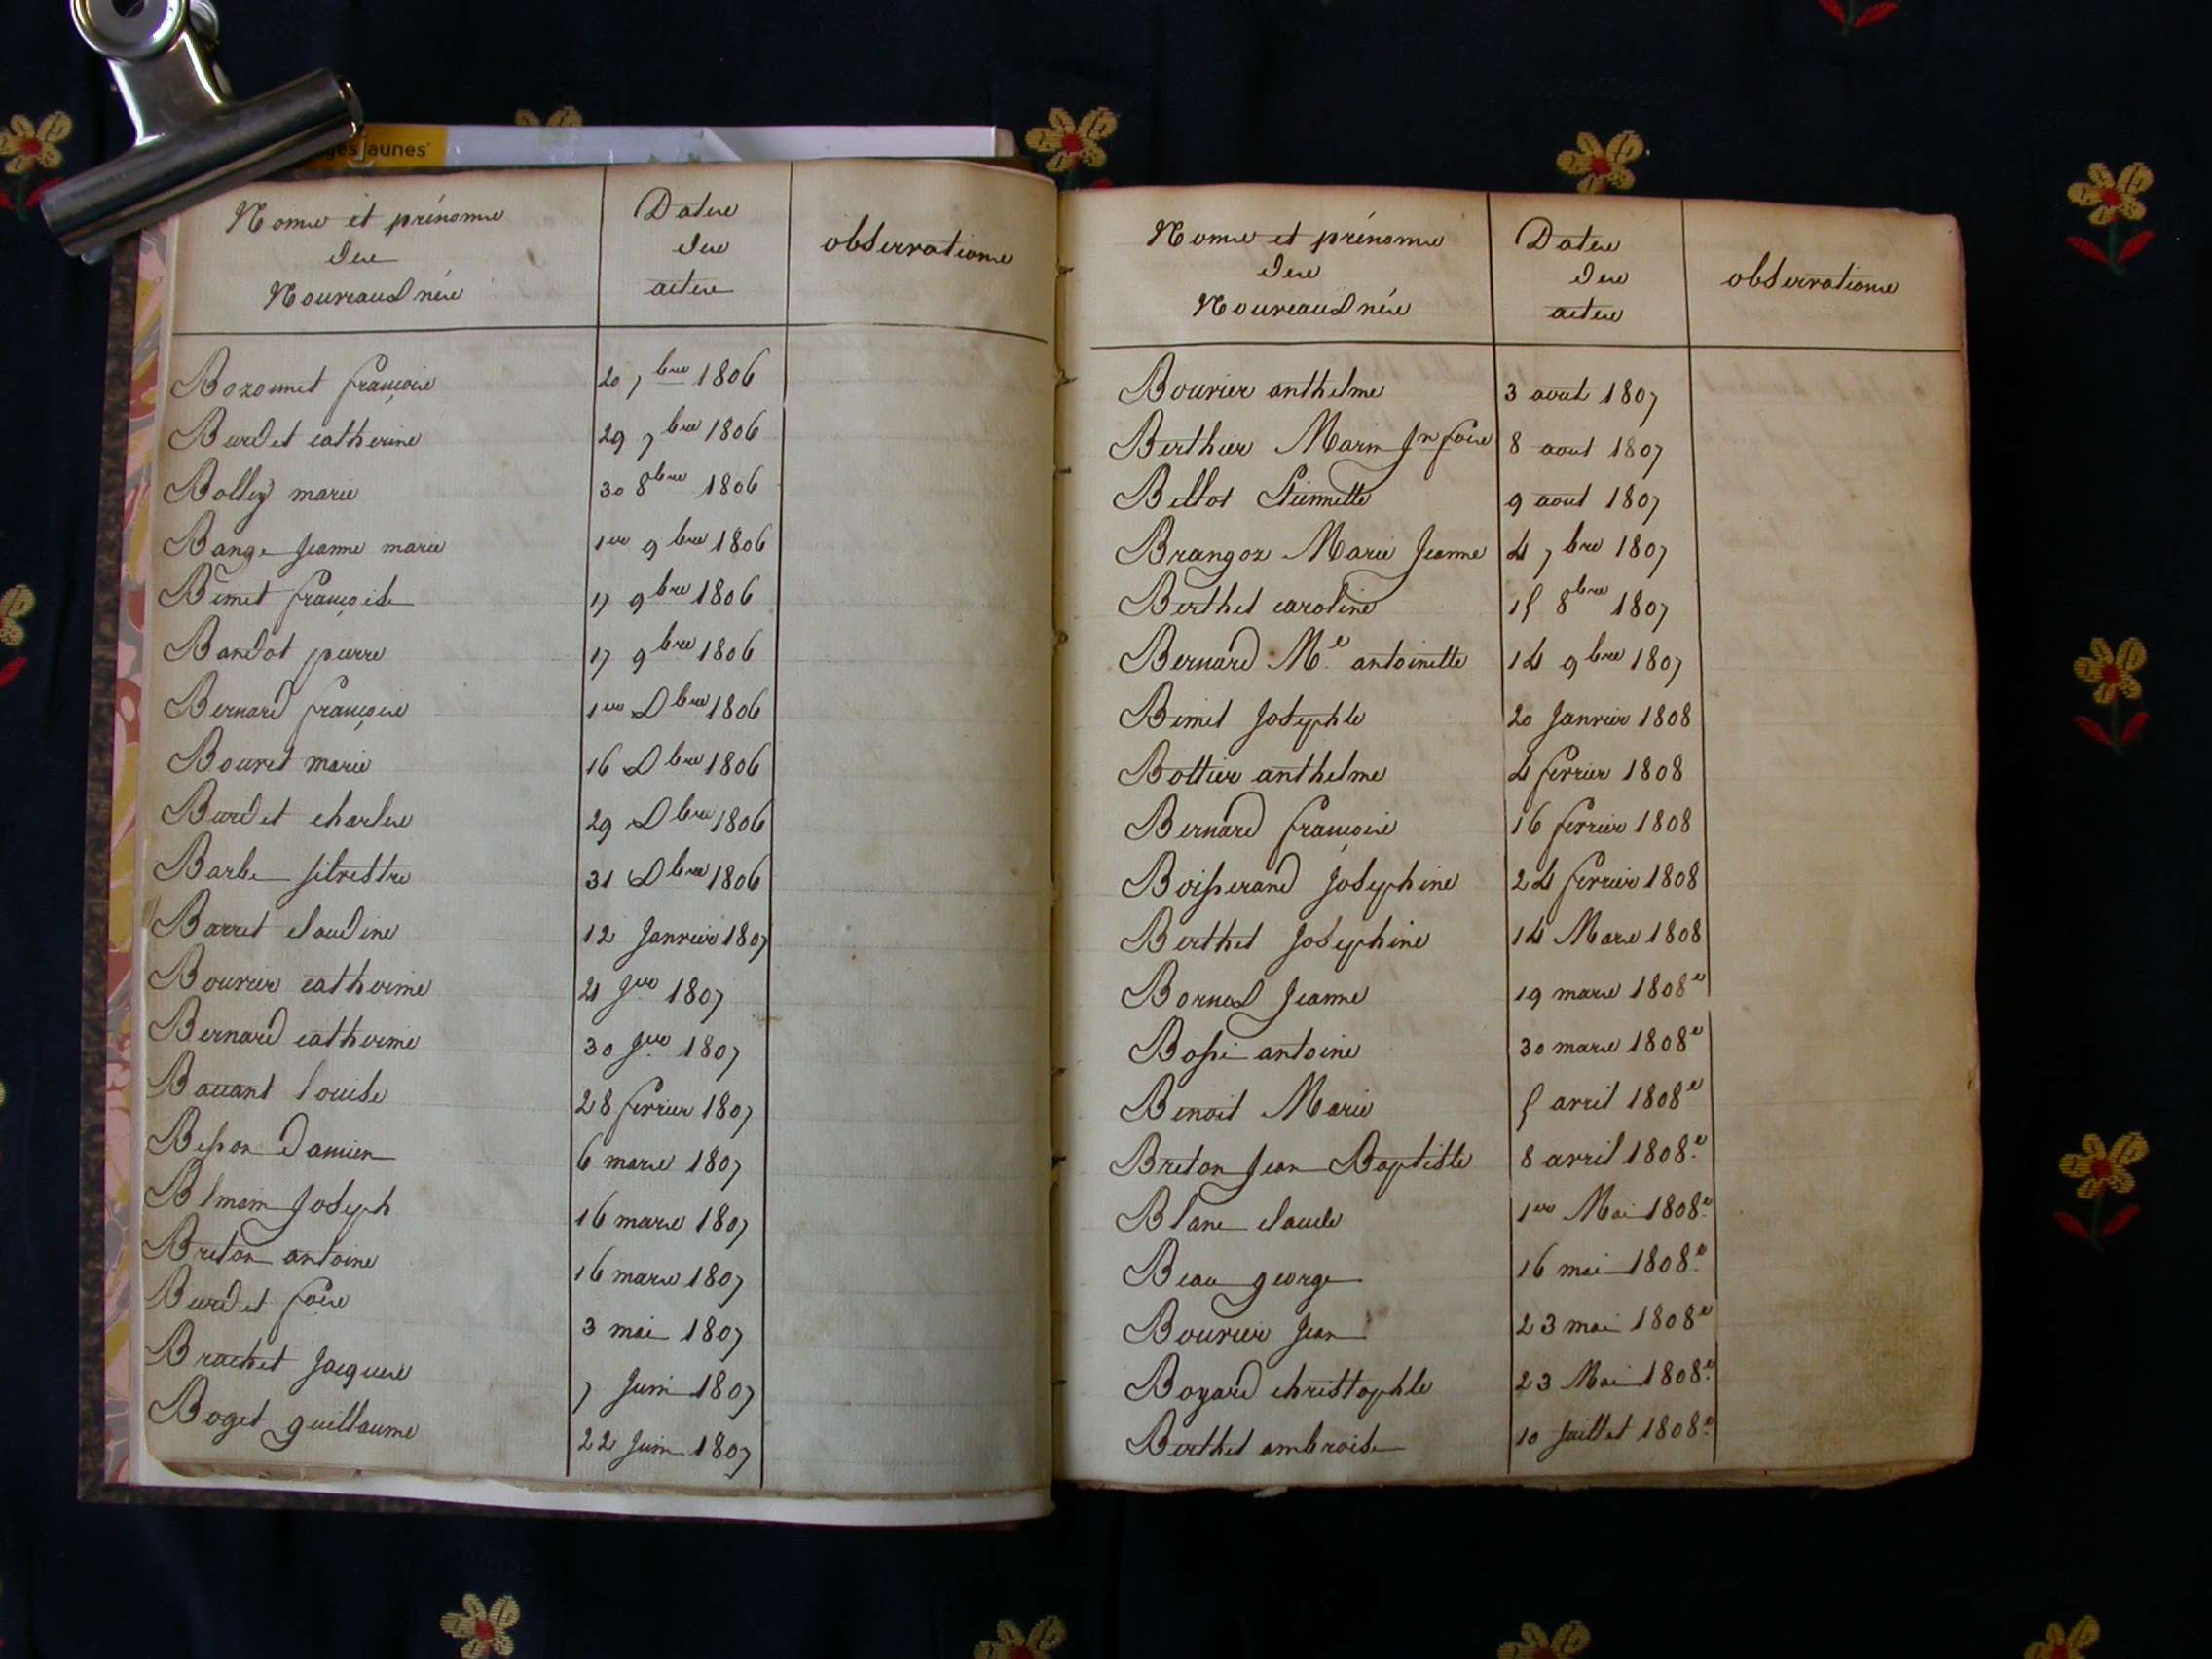 ges Jaunes
Noms et prénoms
des
Nouveaux nés
Dates
des
actes
observations
Bozonnet françois 20 7bre 1806
Burdet catherine 29 7bre 1806
Bolley marie 30 8bre 1806
Bange Jeanne marie 1er 9bre 1806
Bimet françoise 17 9bre 1806
Bandot pierre 17 9bre 1806
Bernard françois 1er Dbre 1806
Bouvet marie 16 Dbre 1806
Burdet charles 29 Dbre 1806
Barbe silvestre 31 Dbre 1806
Barret claudine 12 Janvier 1807
Bouvier catherine 21 Jer 1807
Bernard catherine 30 Jer 1807
louise 28 fevrier 1807
Besson Damien 6 mars 1807
Joseph 16 mars 1807
Breton antoine 16 mars 1807
Burdet fois 3 mai 1807
Brachet Jacques 7 Juin 1807
Boget guillaume 22 Juin 1807
Noms et prénoms
des
Nouveaux nés
Dates
des
actes
observations
Bouvier anthelme 3 aout 1807
Berthier Marin Jn fois 8 aout 1807
Bellot Etiennette 9 aout 1807
Brangoz Marie Jeanne 4 7bre 1807
Berthet caroline 15 8bre 1807
Bernard Me antoinette 14 9bre 1807
Bimet Josephte 20 Janvier 1808
Bottier anthelme 4 fevrier 1808
Bernard françois 16 fevrier 1808
Boisserand Josephine 24 fevrier 1808
Berthet Josephine 14 Mars 1808
Bornod Jeanne 19 mars 1808
Bossi antoine 30 mars 1808
Benoit Marie 5 avril 1808
Breton Jean Baptiste 8 avril 1808
Blanc claude 1er Mai 1808
Beau george 16 mai 1808
Bouvier Jean 23 mai 1808
Boyard christophle 23 Mai 1808
Berthet ambroise 10 Juillet 1808